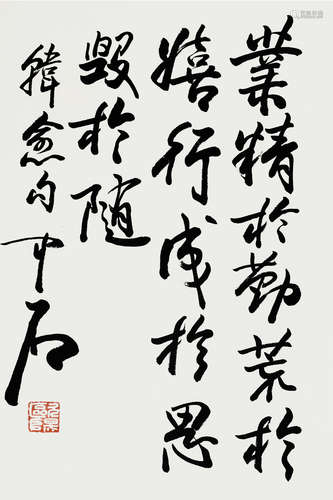 業精於勤荒於
嬉行成於思
毀於隨
韓愈句 中石